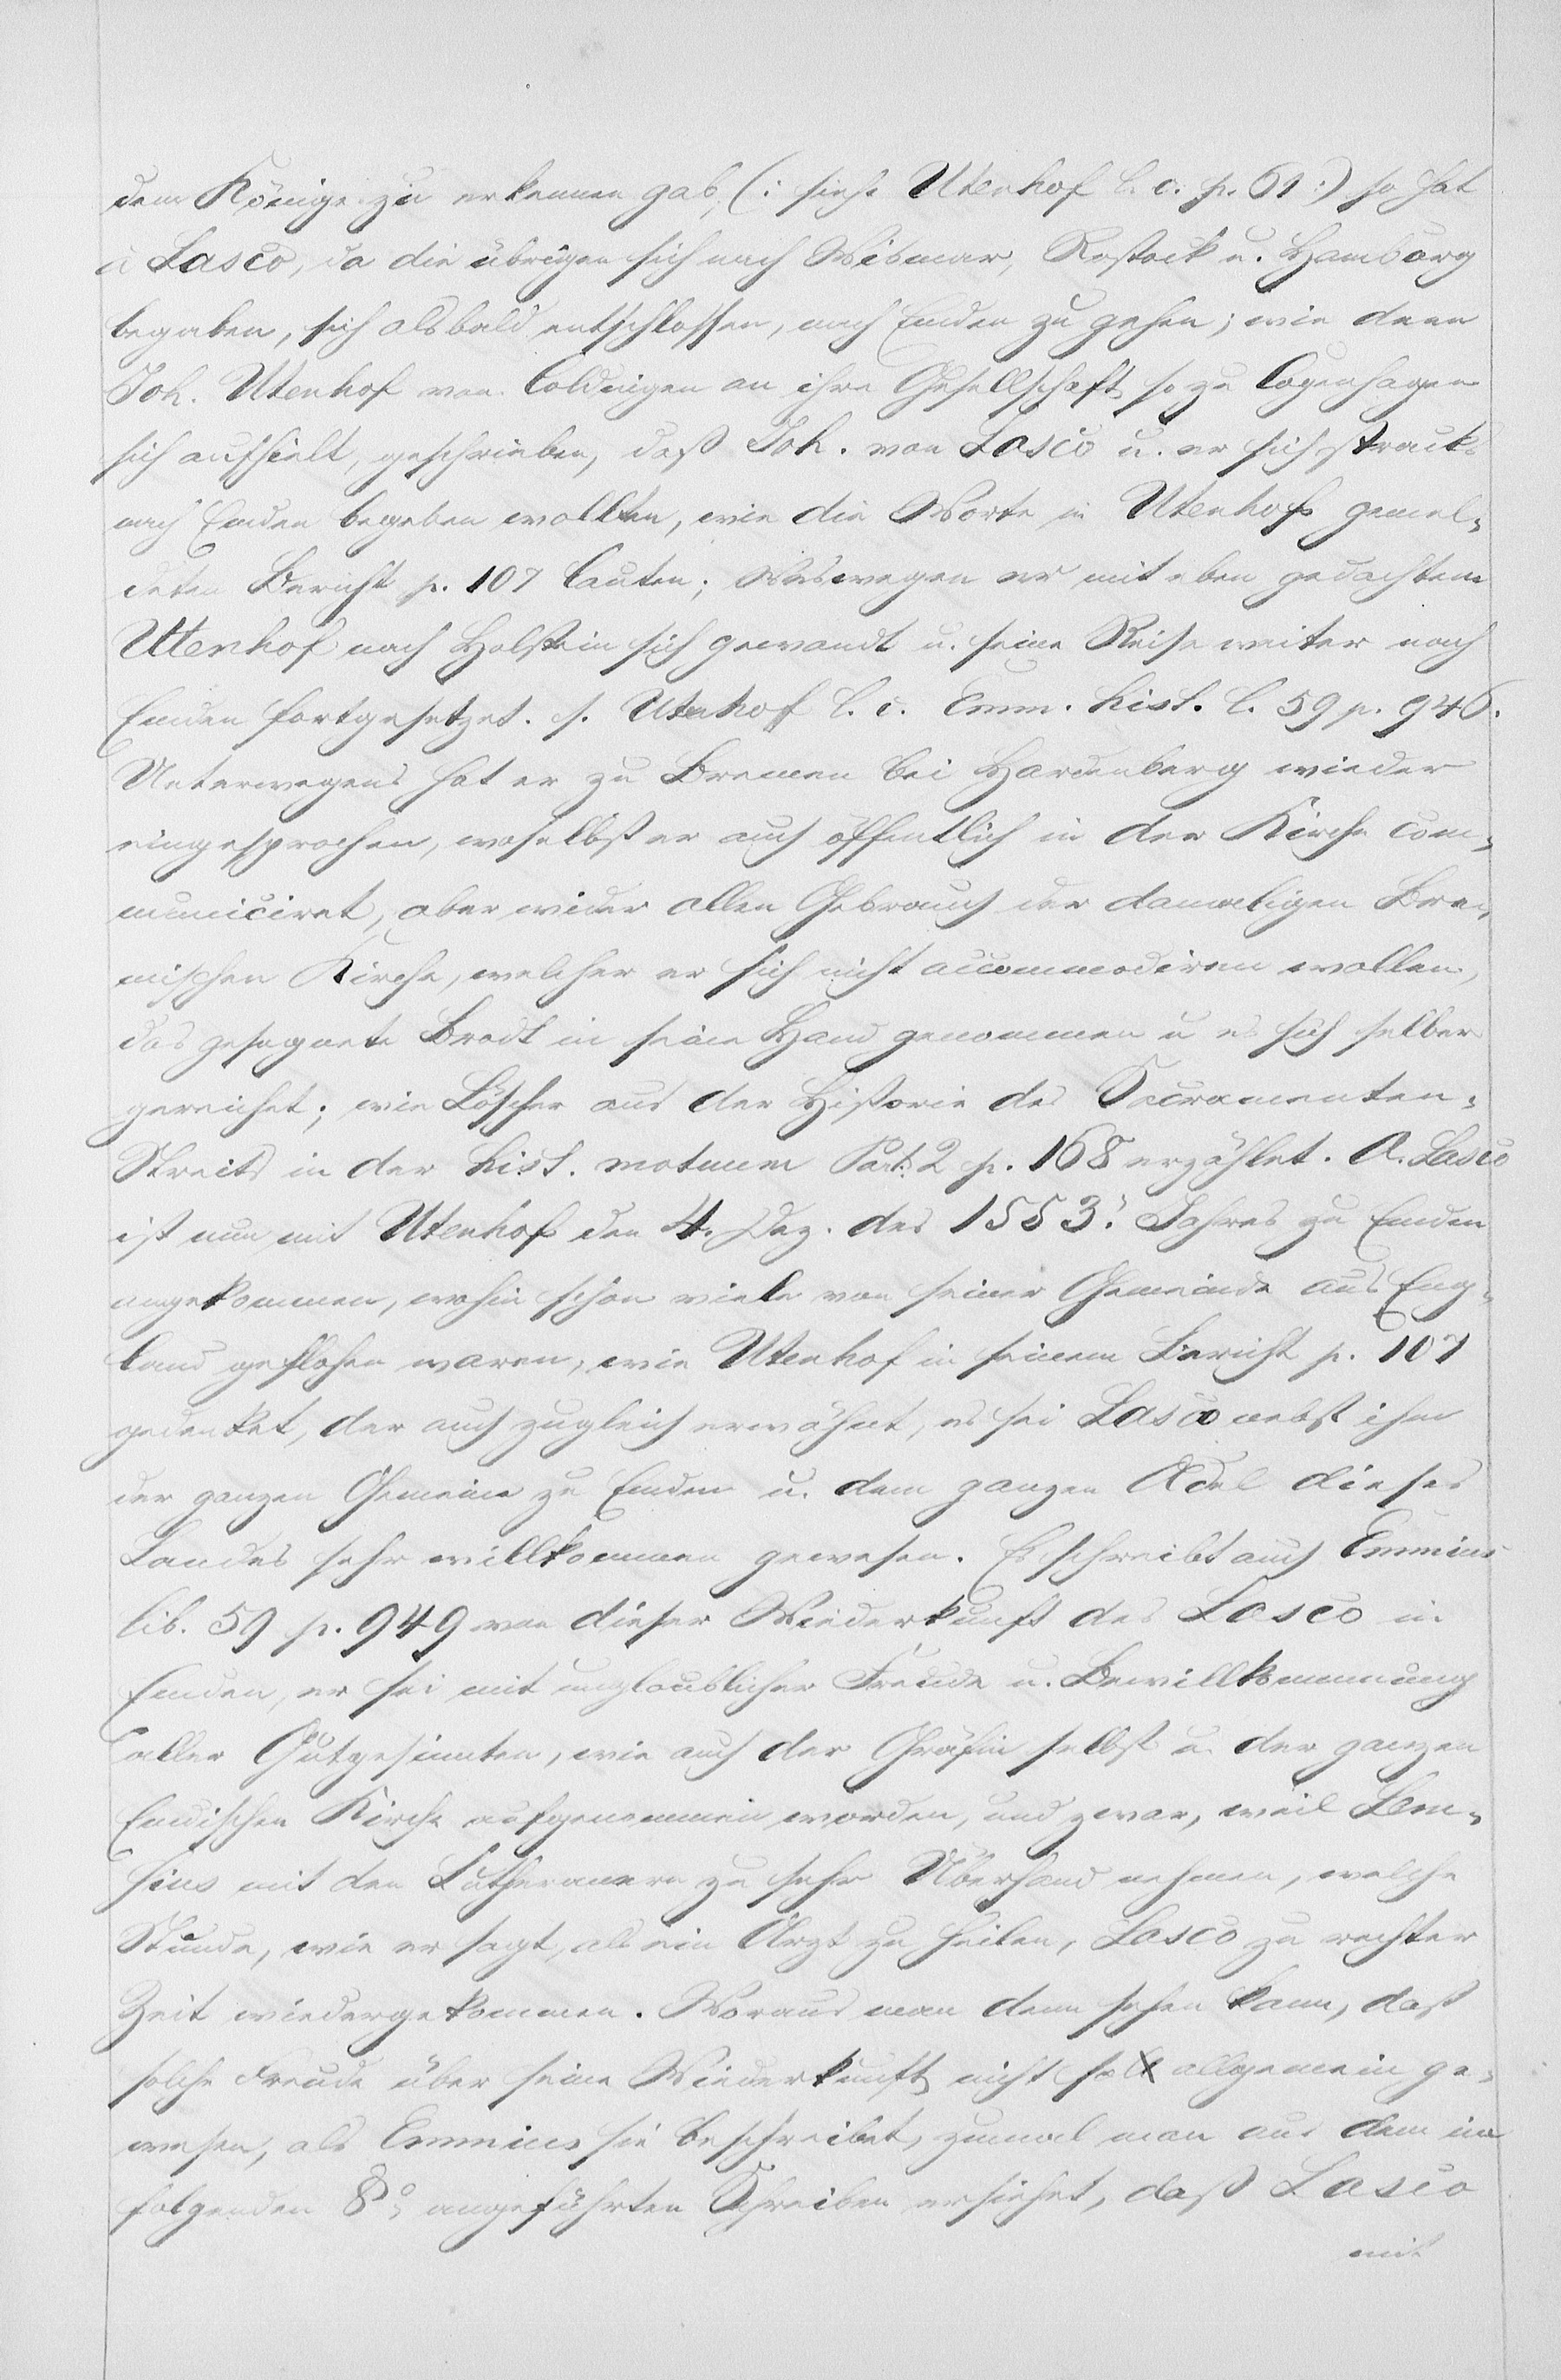 dem Könige zu erkennen gab, (: siehe Utenhof l. c. p. 61 :) so hat
à Lasco, da die übrigen sich nach Wismar, Rostock u. Hamburg
begaben, sich alsbald entschlossen, nach Emden zu gehen; wie denn
Joh. Utenhof von Coldingen an ihre Gesellschaft so zu Copenhagen
sich aufhielt, geschrieben, daß Joh. von Lasco u. er sich stracks
nach Emden begeben wollten, wie die Worte in Utenhofs gemel-
deten Bericht p. 107 lauten; Weswegen er mit eben gedachtem
Utenhof nach Holstein sich gewandt u. seine Reise weiter nach
Emden fortgesetzet. s. Utenhof l. c. Emm. hist. l. 59 p. 946.
Unterwegens hat er zu Bremen bei Hardenberg wieder
eingesprochen, woselbst er auch öffentlich in der Kirche com-
municiret, aber wider allen Gebrauch der damaligen Bre-
mischen Kirche, welcher er sich nicht accommodiren wollen,
das gesegnete Brodt in seine Hand genommen u es sich selber
gereichet; wie Löscher aus der Historie des Sacramenten-
Streits in der hist. motuum Part. 2 p. 168 erzählet. A. Lasco
ist nun mit Utenhof den 4. Dez. des 1553. Jahres zu Emden
angekommen, wohin schon viele von seiner Gemeinde aus Eng-
land geflohen waren, wie Utenhof in seinem Bericht p. 107
gedenket, der auch zugleich erwähnt, es sei Lasco nebst ihm
der ganzen Gemeine zu Emden u. dem ganzen Adel dieses
Landes sehr willkommen gewesen. Es schreibt auch Emmius
lib. 59 p. 949 von dieser Wiederkunft des Lasco in
Emden, er sei mit unglaublicher Freude u. Bewillkommnung
aller Gutgesinnten, wie auch der Gräfin selbst u. der ganzen
Emdischen Kirche aufgenommen worden, und zwar, weil Lem-
sius mit den Lutheranern zu sehr Überhand nehmen, welche
Wunde, wie er sagt, als ein Arzt zu heilen, Lasco zu rechter
Zeit wiedergekommen. Woraus man denn sehen kann, daß
solche Freude über seine Wiederkunft nicht so allgemein ge-
wesen, als Emmius sie beschreibet, zumal man aus dem im
folgenden § angeführten Schreiben ersiehet, daß Lasco
mit